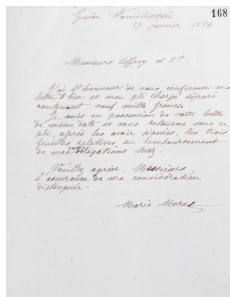 168
Guise Familistère
27 janvier 1886
Messieurs Offroy et Cie.
J'ai l'honneur de vous confirmer ma
lettre d'hier et mon pli chargé séparé
contenant neuf mille francs.
Je suis en possession de votre lettre
de même date et vous retourne sous ce
pli, après les avoir signées, les trois
feuilles relatives au remboursement
de mes obligations Suez.
Veuillez agréer, Messieurs,
l'assurance de ma considération
distinguée.
Marie Moret